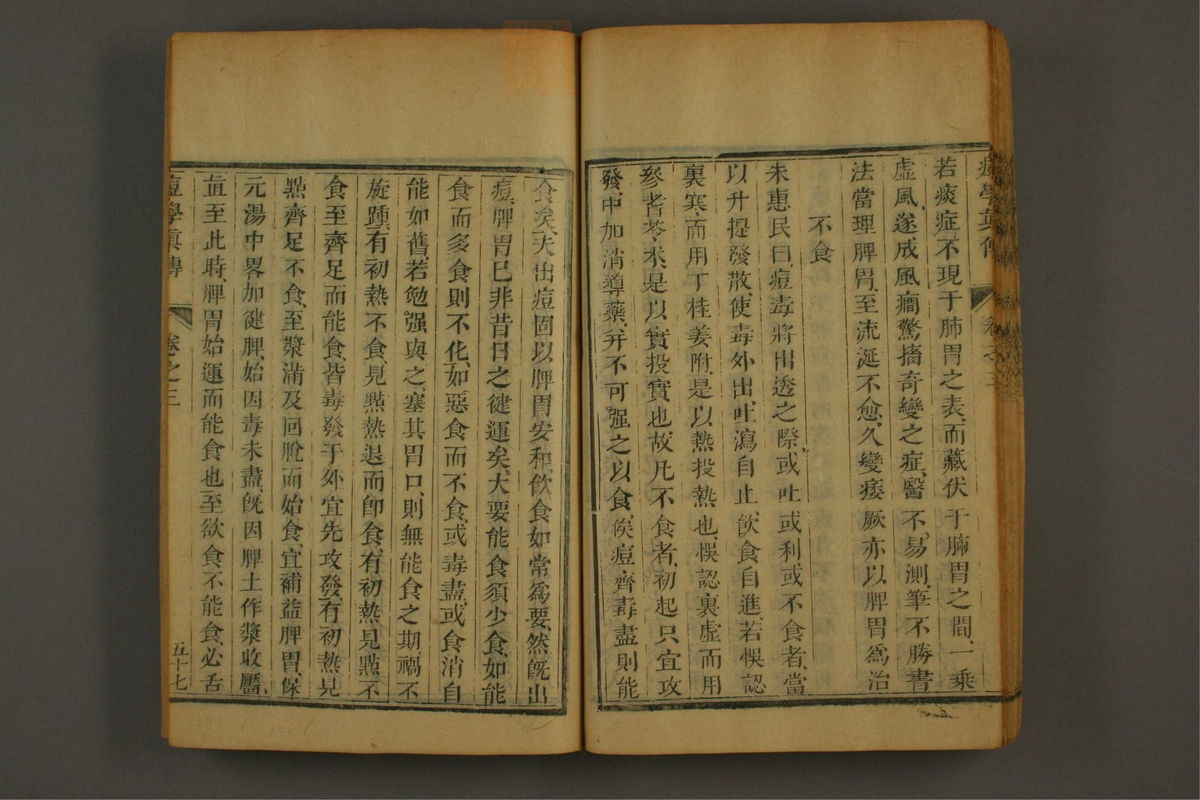 痘學眞傳 卷之三
若痰症不現于肺胃之表而藏伏于肺胃之間一乘
虛風遂成風癇驚搐奇變之症醫不易測筆不勝書
法當理脾胃至流涎不愈久變痿厥亦以脾胃爲治
不食
朱惠民曰痘毒將出透之際或吐或利或不食者當
以升提發散使毒外出吐瀉自止飲食自進若悞認
裏寒而用丁桂姜附是以熱投熱也悞認裏虛而用
參耆苓朮是以實投實也故凡不食者初起只宜攻
發中加消導藥并不可强之以食俟痘齊毒盡則能
食矣夫出痘固以脾胃安和飲食如常爲要然旣出
痘脾胃已非昔日之健運矣大要能食須少食如能
食而多食則不化如惡食而不食或毒盡或食消自
能如舊若勉强與之塞其胃口則無能食之期禍不
旋踵有初熱不食見㸃熱退而卽食有初熱見㸃不
食至齊足而能食皆毒發于外宜先攻發有初熱見
㸃齊足不食至漿滿及回脫而始食宜補益脾胃保
元湯中畧加健脾始因毒未盡旣因脾土作漿收靨
直至此時脾胃始運而能食也至欲食不能食必舌
痘學眞傳 卷之三 五十七